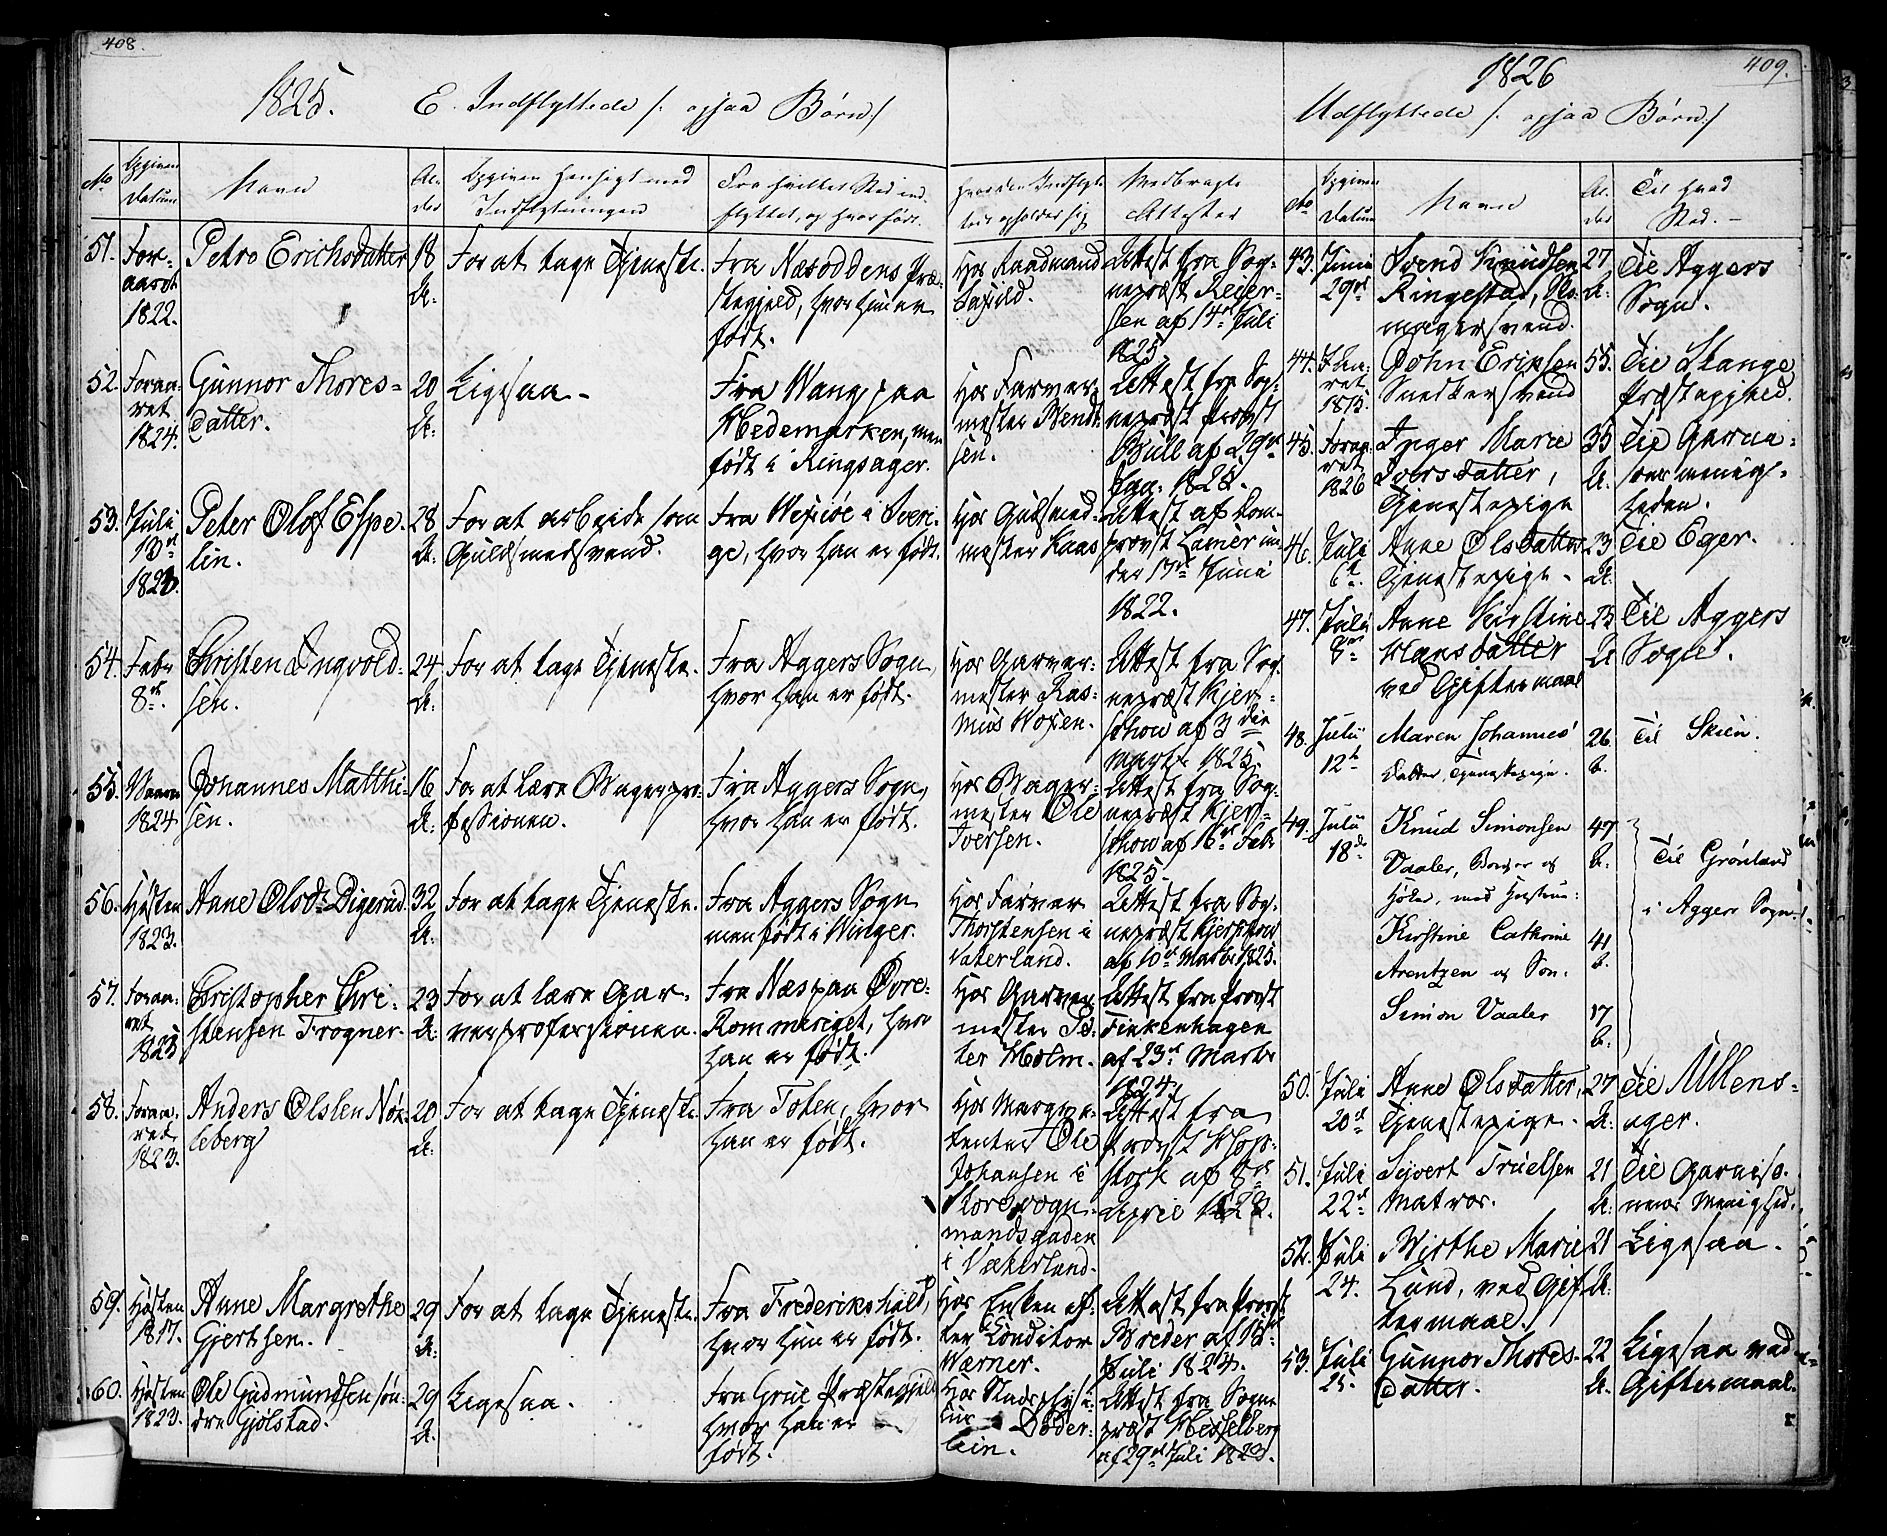 408.
1825. E. Indflyttede /: ogsaa Børn :/
No
Opgiven Datum
Navn
Alder
Opgiven Hensigt med Indflytningen
Fra hvilket Sted indflyttet, og hvor født.
Hvor den Indflyttede opholder sig
Medbragte Attester
51.
Foraaret
1822.
Petro Erichsdatter
18
A:
For at tage Tjeneste.
Fra Næsoddens Præ-
stegjeld, hvor hun er
født.
Hos Raadmand
Attest fra Sog-
nepræst Reier-
sen af 14de Juli
1825.
52.
Foraa-
ret
1824.
Gunnor Thores-
datter.
20
A:
Ligesaa.
Fra Wang paa
Hedemarken, men
født i Ringsager.
Hos Farver-
mester Wendt-
sen.
Attest fra Sog-
nepræst Provst
Bull af 29de
Jan: 1825.
53.
Juli
Peter Olof Espe-
lin.
28
A:
For at arbeide som
Guldsmedsvend.
Fra Wexiøe i Sveri-
ge, hvor han er født.
Hos Guldsmed-
mester Kaas
Attest af Dom-
provst
Juni
1822.
54.
Febr
8de
Christen Ingvold-
sen.
24
A:
For at tage Tjeneste.
Fra Aggers Sogn,
hvor han er født.
Hos Garver-
mester Ras-
mus Woxen.
Attest fra Sog-
nepræst Kjer-
schow af 3die
Marts 1825.
55.
1824
Johannes Matthi-
sen.
16
A:
For at lære Bagerpro-
fessionen.
Fra Aggers Sogn,
hvor han er født.
Hos Bager-
mester Ole
Iversen.
Attest fra Sog-
nepræst Kjer-
schow af 16de Febr
1825.
56.
Høsten
1823.
Anne Olsdr Digerud
32
A:
For at tage Tjeneste.
Fra Aggers Sogn
men født i Winger.
Hos Farver
Thorstensen i
Vaterland.
Attest fra Sog-
nepræst Kjerschow
af 10de Marts 1825.
57.
Foraa-
ret
1823
Christopher Chri-
stensen Frogner.
23
A:
For at lære Gar-
verprofessionen.
Fra Næs paa Øvre-
Rommeriget, hvor
han er født.
Hos Garver-
mester Pe-
ter Holm.
Attest fra Provst
Finkenhagen
af 23de Marts
1824.
58.
Foraa-
ret
1823.
Anders Olsen Nøk-
leberg
20
A:
For at tage Tjeneste
Fra Toten, hvor
han er født.
Hos Marque-
tenter Ole
Johansen i
Storevogn-
mandsgaden
i Vaterland.
Attest fra
Provst Klop-
stock af 8de
April 1823.
59.
Høsten
1817.
Anne Margrethe
Gjertsen.
29
A:
For at tage Tjeneste.
Fra Frederikshald,
hvor hun er født.
Hos Enken ef-
ter Conditor
Wærner.
Attest fra Provst
Breder af 15de
Juli 1824.
60.
Høsten
1823.
Ole Gudmundsen søn-
dre Gjølstad.
29
A.
Ligesaa.
Fra Grue Præstegjeld
hvor han er
født.
Hos Stadsphysi-
kus Døder-
lein.
Attest fra Sogne
præst Hesselberg
af 29de Juli 1823.
409.
1826
Udflyttede /: ogsaa Børn :/
No
Opgiven Datum
Navn
Alder
Til hvad Sted.
43.
Juni
29de
Svend Knudsen
Ringestad, Sko-
magersvend.
27
A:
Til Aggers
Sogn.
44.
John Eriksen
Snedkersvend
55.
Til Stange
Præstegjeld.
45.
Foraa-
ret
1826
Inger Marie
Iversdatter,
Tjenestepige
35
A.
Til Garni-
sons menig-
heden.
46.
Juli
6te
Anne Olsdatter
Tjenestepige.
23
A:
Til Eger.
47.
Juli
8de
Anne Kirstine
Hansdatter
ved Giftermaal
25
A
Til Aggers
Sogn.
48.
Julii
12te
Maren Johannes-
Datter, Tjenestepige.
26
A.
Til Skien.
49.
Julii
18de
Knud Simonsen
Vaaler, Borger og
Høker, med Hustru:
47
A.
Kirstine Cathrine
Arentzen og Søn.
41
A.
Simon Vaaler
17
A:
Til Grønland
i Aggers Sogn.
50.
Juli
20de
Anne Olsdatter,
Tjenestepige.
27
A:
Til Ullens-
ager.
51.
Juli
22de
Sivert Truelsen
Matros.
21
A:
Til Garniso-
nens Menighed.
52.
Juli
24.
Birthe Marie
Lund, ved Gif-
termaal.
21
A:
Ligesaa.
53.
Juli
25.
Gunnor Thores-
datter.
22
A:
Ligesaa ved
Giftermaal.